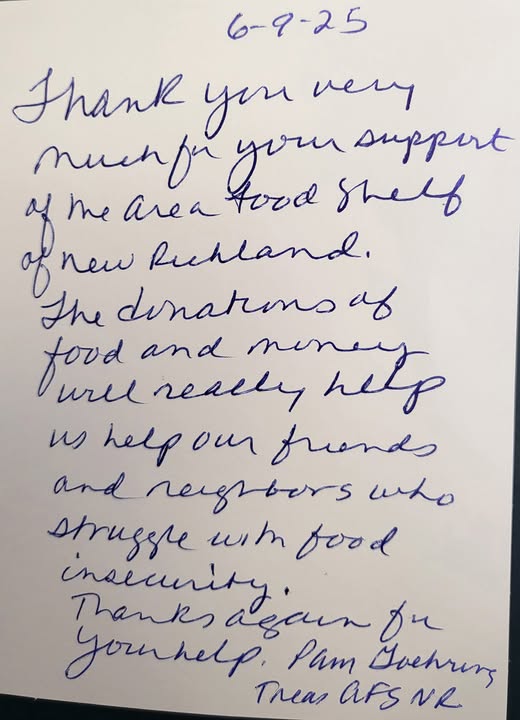 6-9-25
Thank you very
much for your support
of the area food shelf
of new Richland.
The donations of
food and money
will really help
us help our friends
and neighbors who
struggle with food
insecurity.
Thanks again for
your help. Pam Goehring
Treas AFS NR